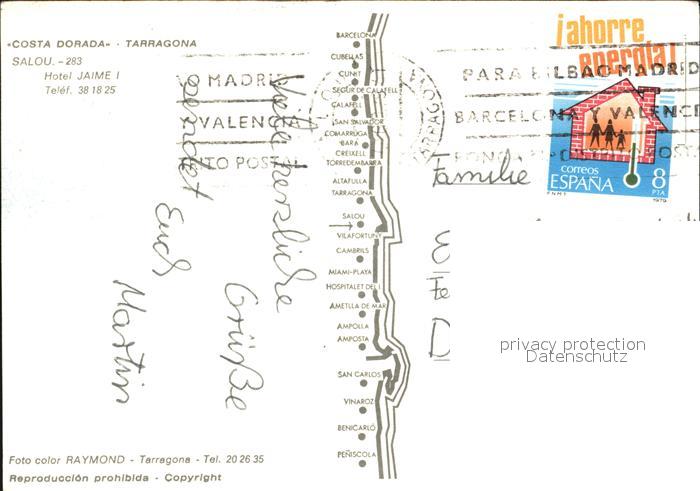 «COSTA DORADA» - TARRAGONA
SALOU. - 283
Hotel JAIME I
Teléf. 38 18 25
Viele herzliche Grüße
sendet
Euch
Martin
BARCELONA
CUBELLAS
CUNIT
SEGUR DE CALAFELL
CALAFELL
SAN SALVADOR
COMARRUGA
BARÁ
CREIXELL
TORREDEMBARRA
ALTAFULLA
TARRAGONA
SALOU
VILAFORTUNY
CAMBRILS
MIAMI-PLAYA
HOSPITALET DEL I.
AMETLLA DE MAR
AMPOLLA
AMPOSTA
SAN CARLOS
VINAROZ
BENICARLÓ
PEÑISCOLA
O MADRID
VALENCIA
NTO POSTAL
PARA BILBAO MADRID
BARCELONA Y VALENCI
¡ahorre
energía!
correos
ESPAÑA
8
PTA
F.N.M.T.
1979
Familie
D
privacy protection
Datenschutz
Foto color RAYMOND - Tarragona - Tel. 20 26 35
Reproducción prohibida - Copyright